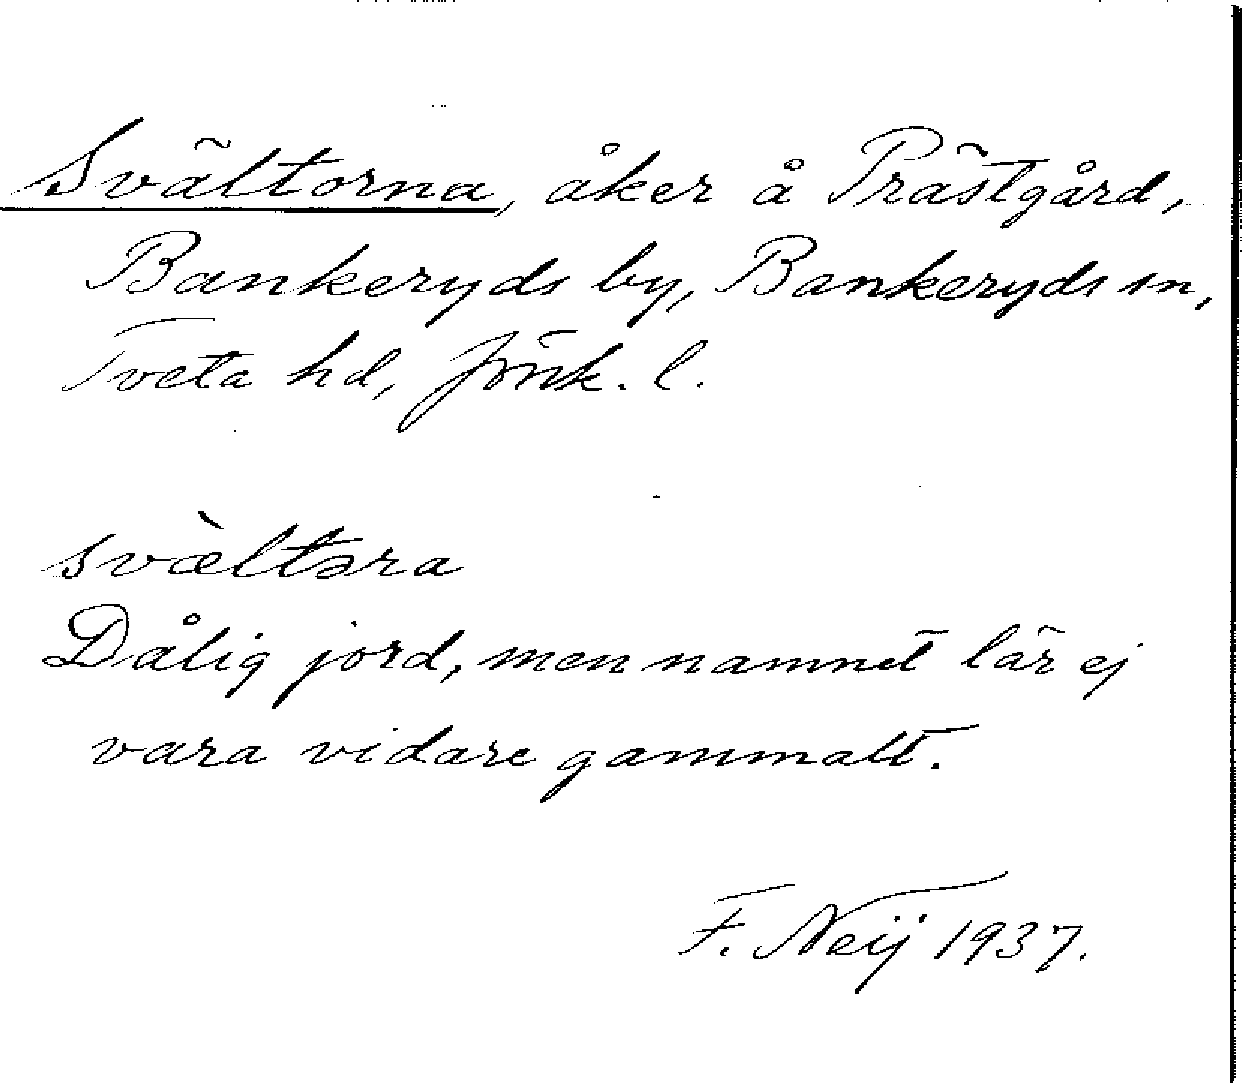 Svältorna, åker å Prästgård,
Bankeryds by, Bankeryds sn,
Tveta hd, Jönk. l.
svæ̀ltəra
Dålig jord, men namnet lär ej
vara vidare gammalt.
F. Neij 1937.